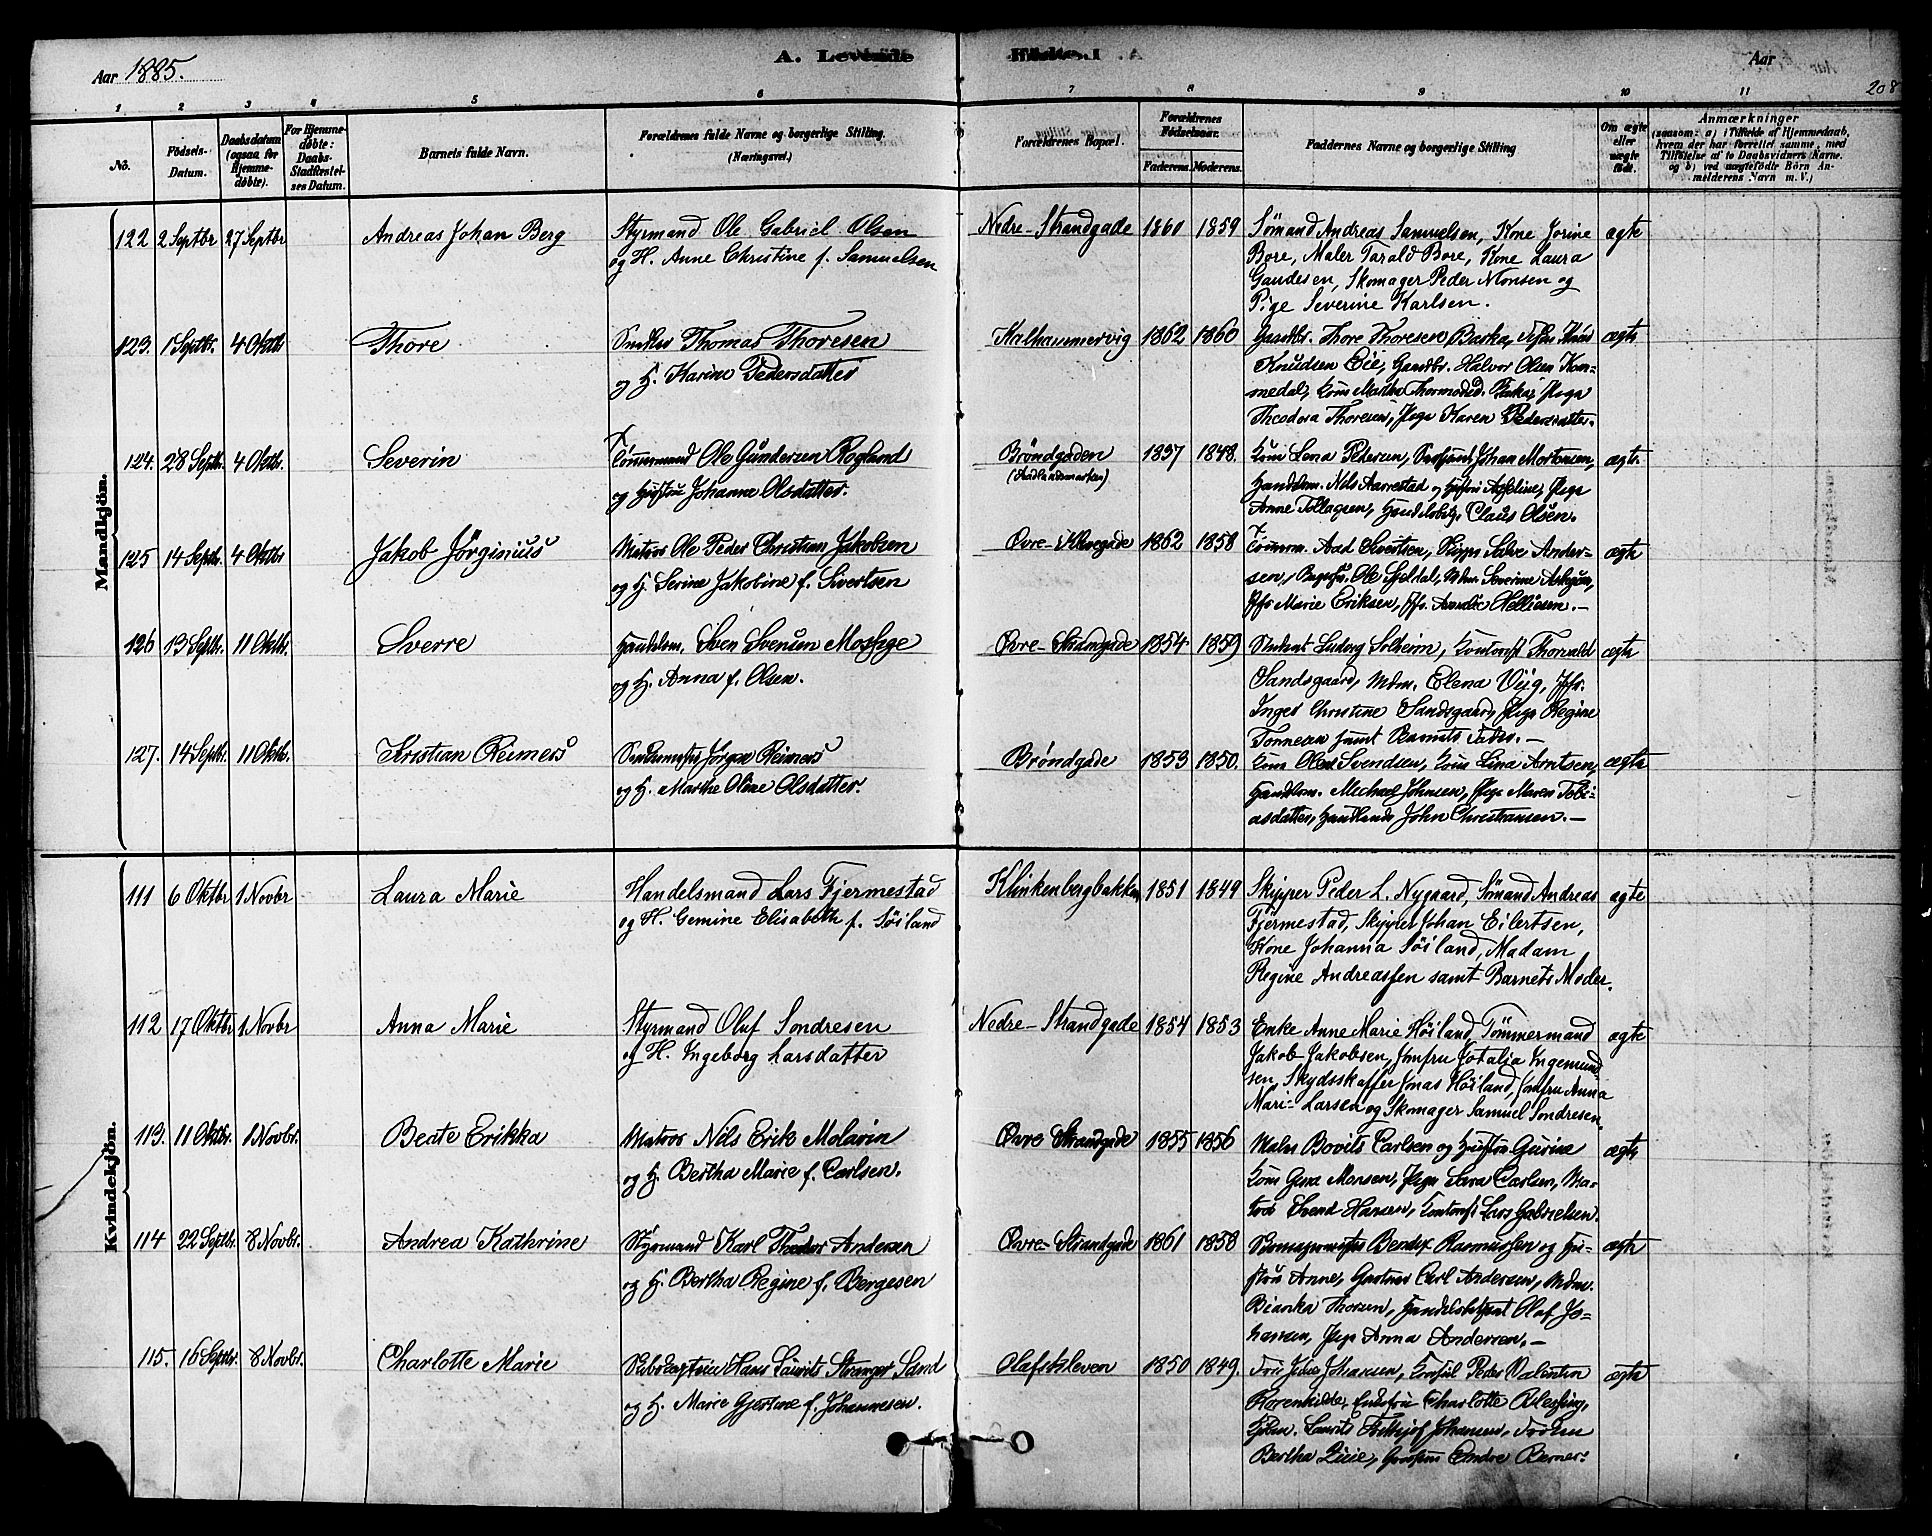 Aar 1885.
A. Levende
Fødte.
Aar
208
1 2 3 4 5 6 7 8 9 10 11
No.
Födsels-Datum.
Daabsdatum (ogsaa for Hjemmedöbte).
For Hjemmedöbte: Daabs-Stadfæstelses Datum.
Barnets fulde Navn.
Forældrenes fulde Navne og borgerlige Stilling. (Næringsvei.)
Forældrenes Bopæl.
Forældrenes Födselsaar.
Faderens. Moderens.
Faddernes Navne og borgerlige Stilling
Om ægte eller uægte födt.
Anmærkninger
(saasom: a) i Tilfælde af Hjemmedaab, hvem der har forrettet samme, med Tilföielse af to Daabsvidners Navne. og b) ved uægtefödte Börn Anmelderens Navn m. V.)
Mandkjön.
122 2 Septbr 27 Septbr Andreas Johan Berg
Styrmand Ole Gabriel Olsen
og H. Anne Christine f. Samuelsen
Nedre-Strandgade 1860 1859
Sømand Andreas Samuelsen, Kone Jorine
Bore, Maler Tarald Bore, Kone Laura
Gaudesen, Skomager Peder Monsen og
Pige Severine Karlsen.
ægte
123. 1 Septbr. 4 Oktbr Thore
Thomas Thoresen
og H. Karine Pedersdatter
Kalhammervig 1862 1860
Gaardbr. Thore Thoresen Barka,
Knudsen Eie, Gaardbr. Halvor Olsen Kom-
medal, Kone Martha Thormodsd. Barka, Pige
Theodora Thoresen, Pige Karen Pedersdatter.
ægte
124. 28 Septbr. 4 Oktbr. Severin
Tömmermand Ole Gundersen Rogland
og Hustru Johanne Olsdatter.
Bröndgaden
1857 1848.
Kone Lena Pedersen, Johan Mortensen,
Handelsm. Nils Aarrestad og Hustru
Anne Tollagsen, Handelsbetj. Claus Olsen.
ægte
125 14 Septbr. 4 Oktbr. Jakob Jörginius
Matros Ole Peder Christian Jakobsen
og H. Serine Jakobine f. Sivertsen
Øvre- 1862 1858
Tömmerm. Aad Sivertsen, Salve Ander-
sen, Ole Mdm. Severine
Jfr Marie Eriksen, Jfr. Helliesen.—
ægte
126 13 Septbr. 11 Oktbr. Sverre
Handelsm. Sven Svensen Moshge
og H. Anna f. Olsen.
Øvre-Strandgade 1854 1859
Student Ludvig Solheim, Kontorist Thorvald
Sandsgaard, Mdm. Elena Viig, Jfr.
Inger Christine Sandsgaard, Pige Regine
Tonnesen samt Barnets Fader.—
ægte
127. 14 Septbr. 11 Oktbr. Kristian Reimers
Jörgen Reimers
og H. Marthe Oline Olsdatter.
Bröndgade 1853 1850.
Kone Svendsen, Kone Lina Arntsen,
Handelsm. Michael Johnsen, Pige Maren Tobi-
asdatter, John Christiansen.—
ægte
Kvindekjön.
111 6 Oktbr 1 Novbr Laura Marie
Handelsmand Lars Fjermestad
og H. Gemine Elisabeth f. Söiland
Klinkenbergbakken 1851 1849
Skipper Peder L. Nygaard, Sömand Andreas
Fjermestad, Skipper Johan Eilertsen,
Kone Johanna Söiland, Madam
Regine Andreassen samt Barnets Moder.
ægte
112 17 Oktbr 1 Novbr Anna Marie
Styrmand Oluf Sondresen
og H. Ingeborg Larsdatter
Nedre-Strandgade 1854 1853
Enke Anne Marie Höiland, Tömmermand
Jakob Jakobsen, Jomfru Jotalia Ingemund-
sen Skydsskaffer Jonas Höiland, Jomfru Anna
Marie Larsen og Skomager Samuel Sondresen.
ægte
113. 11 Oktbr. 1 Novbr. Beate Erikka
Matros Nils Erik Molavin
og H. Bertha Marie f. Carlsen.
Øvre Strandgade 1855 1856
Maler Bovits Carlsen og Hustru Gurine
Kone Gura Monsen, Pige Sara Carlsen, Ma-
tros Svend Hansen, Kontorist Lars Gabrielsen.
ægte
114 22 Septbr. 8 Novbr. Andrea Kathrine
Styrmand Karl Theodor Andersen
og H. Bertha Regine f. Bergesen
Øvre-Strandgade 1861 1858
Bendix Rasmussen og Hu-
stru Anne, Gartner Carl Andersen, Mdm.
Bianka Thorsen, Handelsbetjent Olaf Jo-
hansen, Pige Anna Andersen.—
ægte
115. 16 Septbr. 8 Novbr. Charlotte Marie
Hans Laurits Stranger Sand
og H. Marie Gjertine f. Johannesen.
Olafskleven 1850 1849.
Johansen, Konsul Peder Valentin
Rosenkilde, Charlotte Blessing,
Laurits Fridtjof Johansen, Fröken
Bertha Andre Berner.
ægte